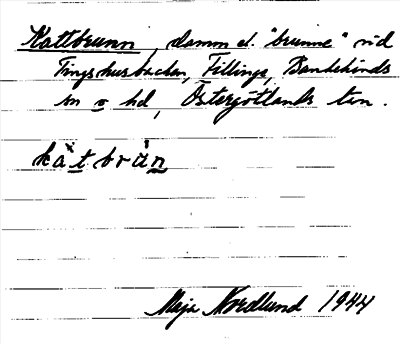 Kattbrunn, damm el. "brunne" vid
Tingshusbacken, Fillinge, Bankekinds
sn o hd, Östergötlands län.
kàtbrún
Maja Nordlund 1944